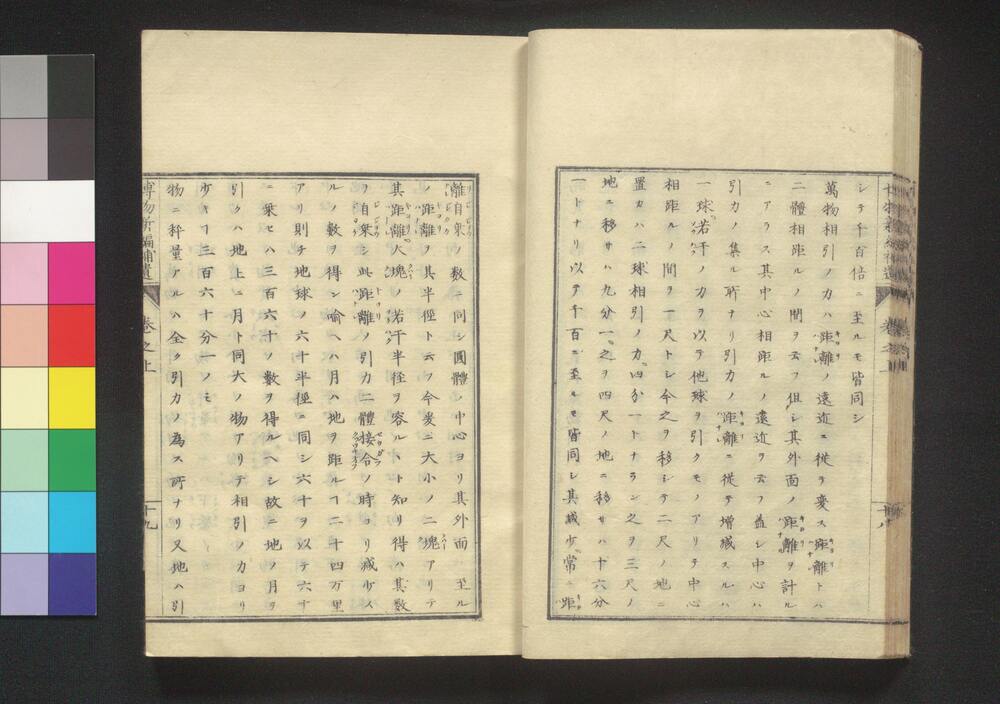 シテ千百倍ニ至ルモ皆同シ
萬物相引ノ力ハ距離ノ遠近ニ從テ変ス距離トハ
二體相距ルノ間ヲ云フ但シ其外面ノ距離ヲ計ル
ニアラス其中心相距ルノ遠近ヲ云フ蓋シ中心ハ
引力ノ集ル所ナリ引力ノ距離ニ從テ増減スルハ
一球若干ノ力ヲ以テ他球ヲ引クモノアリテ中心
相距ルノ間ヲ一尺トシ今之ヲ移シテ二尺ノ地ニ
置カハ二球相引ノ力四分一トナラン之ヲ三尺ノ
地ニ移サハ九分一之ヲ四尺ノ地ニ移サハ十六分
一トナリ以テ千百ニ至ルモ皆同シ其減少常ニ距
離自乗ノ数ニ同シ圓體ノ中心ヨリ其外面ニ至ル
ノ距離ヲ其半徑ト云フ今爰ニ大小ノ二塊アリテ
其距離大塊ノ若干半径ヲ容ルヽト知リ得ハ其数
ヲ自乗シ此距離ノ引力二體接合ノ時ヨリ減少ス
ルノ数ヲ得ン喩ヘハ月ハ地ヲ距ルヿ二十四万里
アリ則チ地球ノ六十半徑ニ同シ六十ヲ以テ六十
ニ乗セハ三百六十ノ数ヲ得ルヘシ故ニ地ノ月ヲ
引クハ地上ニ月ト同大ノ物アリテ相引ノ力ヨリ
少キヿ三百六十分一ノミ
物ニ秤量アルハ全ク引力ノ為ス所ナリ又地ハ引
博物新編補遺 卷之上 十九